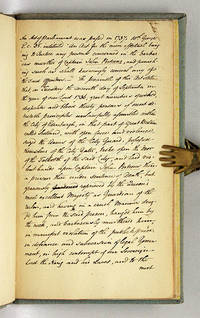 An Act of Parliament was passed in 1737. 10th George
2. C. 35. intituled "An Act for the more effectual bring
ing to Justice any persons concerned in the barbar
ous murther of Captain John Porteous, and punish
ing such as shall knowingly conceal any of
the said Offenders." The preamble of the Act states
that, on Tuesday the seventh day of September, in
the year of our Lord 1736, great numbers of wicked,
disposed and bloody-thirsty persons of most
detestable principles unlawfully assembled within
the City of Edinburgh, in that part of Great Britain
called Scotland, with open force and violence,
seize the Arms of the City Guard, possess
themselves of the City Gates, broke open the door
of the Tolbooth of the said City, and laid vio
lent hands upon Captain John Porteous then
a prisoner there under sentence of Death, but
graciously reprieved by the Queen's
most excellent Majesty as Guardian of the
realm, and having in a cruel manner dragg
ed him from the said prison, hanged him by
the neck, and barbarously murthered him in
manifest violation of the public peace,
in defiance and subversion of legal Govern
ment, in high contempt of our Sovereign
Lord the King and his Laws, and to the
most